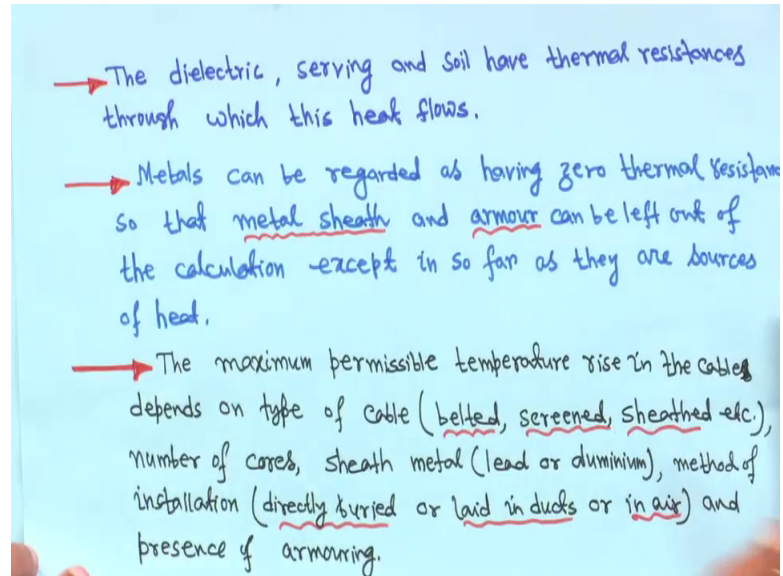 The dielectric, serving and soil have thermal resistances
through which this heat flows.
Metals can be regarded as having zero thermal resistan
so that metal sheath and armour can be left out of
the calculation except in so far as they are sources
of heat.
The maximum permissible temperature rise in the cables
depends on type of cable (belted, screened, sheathed etc.),
number of cores, sheath metal (lead or aluminium), method of
installation (directly buried or laid in ducts or in air) and
presence of armouring.